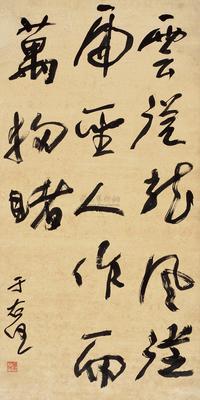 雲從龍風從
虎聖人作而
萬物睹
于右任